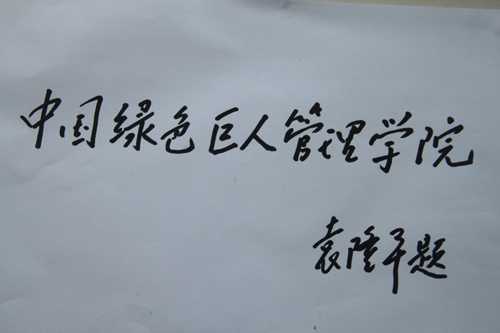 中国绿色巨人管理学院
袁隆平题